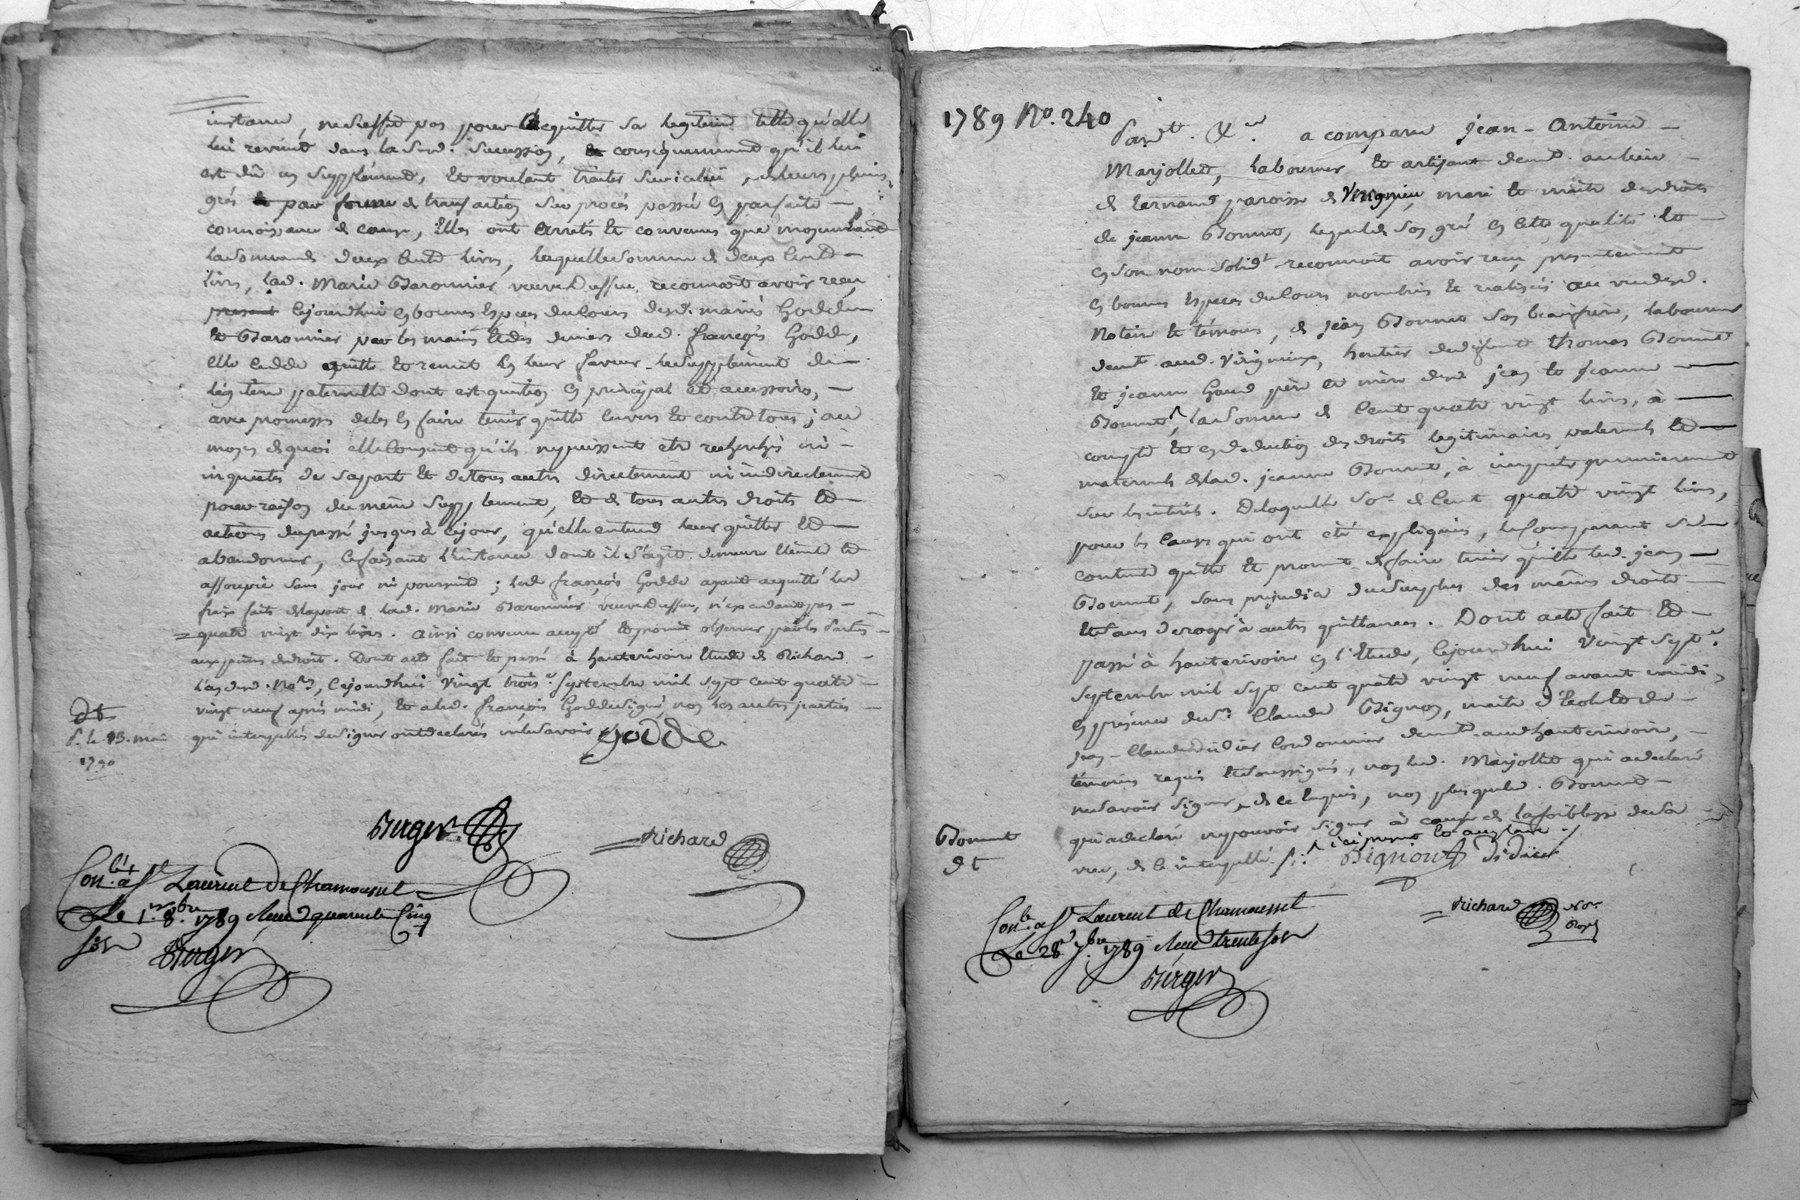 instance, ne suffit pas pour l'acquitter sa legitime telle qu'elle
lui revient dans la sud. succession, consequemment qu'il lui
est dû un supplément, et voulant traiter sur icelui, de leurs pleins
grés par forme de transaction sur procés passée en parfaite
connoissance de cause, elles ont arrêté et convenu que moyennant
la somme de deux cents livres, laquelle somme de deux cents
livres, lad. Marie Baronnier veuve Dussuc, reconnoit avoir reçu
cejourd'hui en bonnes espèces du cours desd. mariés Goddde
et Baronnier par les mains et des deniers dud. françois Godde,
elle cedde quitte et remet en leur faveur le supplément de
légitime paternelle dont est question en principal et accessoires,
avec promesse de les en faire tenir quitte envers et contre tous; au
moyen de quoi elle consent qu'ils n'en puissent etre recherchés ni
inquiétés de sa part et de tous autres directement ni indirectement
pour raison du même supplement, et de tous autres droits et
actions du passé jusques à ce jour, qu'elle entend leur quitter et
abandonner, ce faisant l'instance dont il s'agit demeure éteinte et
assoupie sans jour ni poursuite; led. françois Godde ayant acquitté les
frix faits de la part de lad. Marie Baronnier veuve Dussuc, n'excedant pas
quatre vingt dix livres. ainsi convenu accepté et promis observer par les parties
aux peines de droit. Dont acte fait et passé à hauterivoire Etude de Richard
l'un desd. No.res, cejourd'hui vingt trois septembre mil sept cent quatre
vingt neuf après midi, et a led. françois Godde signé non les autres parties
qui interpellées de signer ont declaré ne le savoir. godde
dt
d. le 13. mai
1790
Berger
Richard
Con.lé à St Laurent de Chamousset
Le 1.er 8.bre 1789 Reçu quarante cinq
sols Berger
1789 No. 240
Pard.t &.a a comparu jean-Antoine
Marjollet, laboureur et artisant demt. au lieu
de paroisse de Virignieu mari et maitre des droits
de jeanne Bonnet, lequel de son gré en cette qualité et
en son nom solid.t reconnoit avoir reçu présentement
en bonnes espèces du cours nombrées et réalisées au vu desd.
Notaire et témoins, de jean Bonnet son beaufrère, laboureur
demt. aud. Virignieux, heritier de défunt thomas Bonnet
et jeanne père et mère desd. jean et jeanne
Bonnet, la somme de cent quatre vingt livres, à
compte et en deduction des droits legitimaires paternels et
maternels de lad. jeanne Bonnet, à imputer premierement
sur les intérêts. De laquelle so.e de cent quatre vingt livres,
pour les causes qui ont été expliquées, le comparant se
contente quitte et promet de faire tenir quitte led. jean
Bonnet, sans prejudice du surplus des mêmes droits
et sans deroger à autres quittances. Dont acte fait et
passé à hauterivoire en l'Etude, cejourd'hui vingt sept
septembre mil sept cent quatre vingt neuf avant midi,
en présence de s.r Claude Bignon, maitre d'Ecole et de
Jean-Claude didier Cordonnier demt. aud. hauterivoire,
témoins requis et soussignés, non led. Marjollet qui a declaré
ne savoir signer, de ce enquis, non plus que led. Bonnet
qui a declaré ne pouvoir signer à cause de la foiblesse de sa
vue, de ce interpellé.
Bonnet
dt
Bignon Didier
Con.lé à St Laurent de Chamousset
Le 28 7.bre 1789 Reçu trente sols
Berger
Richard No.re
Roy.l